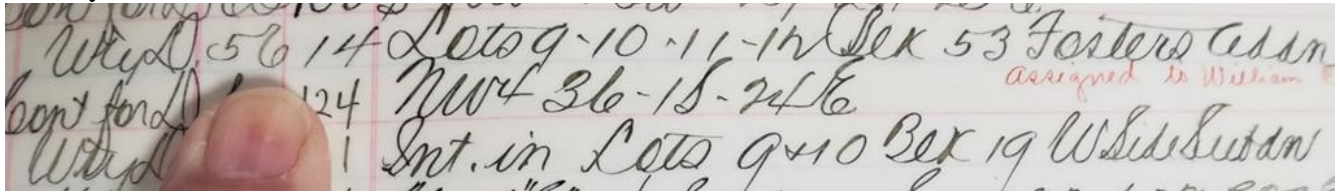 WtyD 56 14 Lots 9-10-11-12 Blk 53 Fosters Addn
assigned to William
Cont for D 124 NW4 36-18-24 E
WtyD 1 Int. in Lots 9 & 10 Blk 19 W Side Subdn